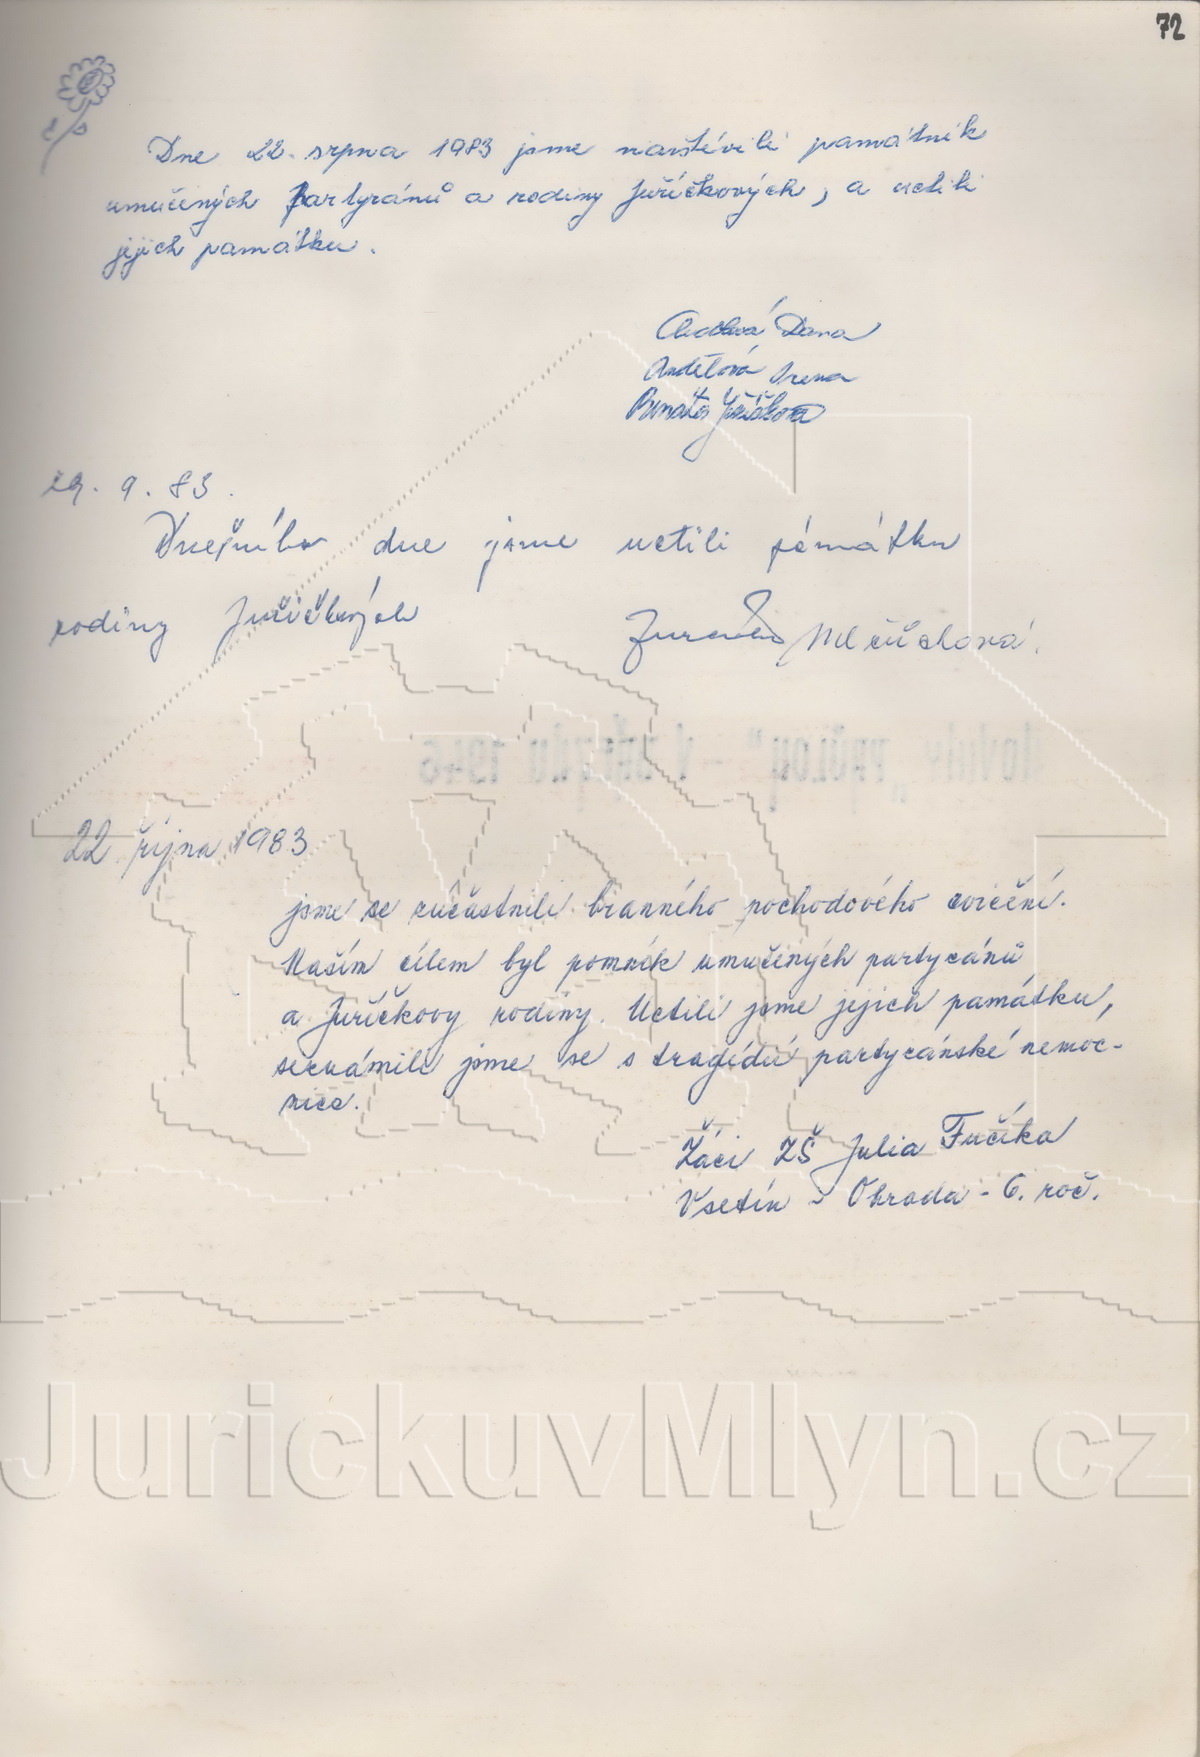 72
Dne 22. srpna 1983 jsme navštěvili památník
umučených Partyzánů a rodiny Juříčkových, a uctili
jejich památku.
Dana
Andělová Irena
Renata
29. 9. 83.
Dnešního dne jsme uctili památku
rodiny Juřičkových
22. října 1983
jsme se zúčastnili branného pochodového cvičení.
Naším cílem byl pomník umučených partyzánů
a Juříčkovy rodiny. Uctili jsme jejich památku,
seznámili jsme se s tragédií partyzánské nemoc-
nice.
Žáci ZŠ Julia Fučíka
Vsetín - Ohrada - 6. roč.
JurickuvMlyn.cz